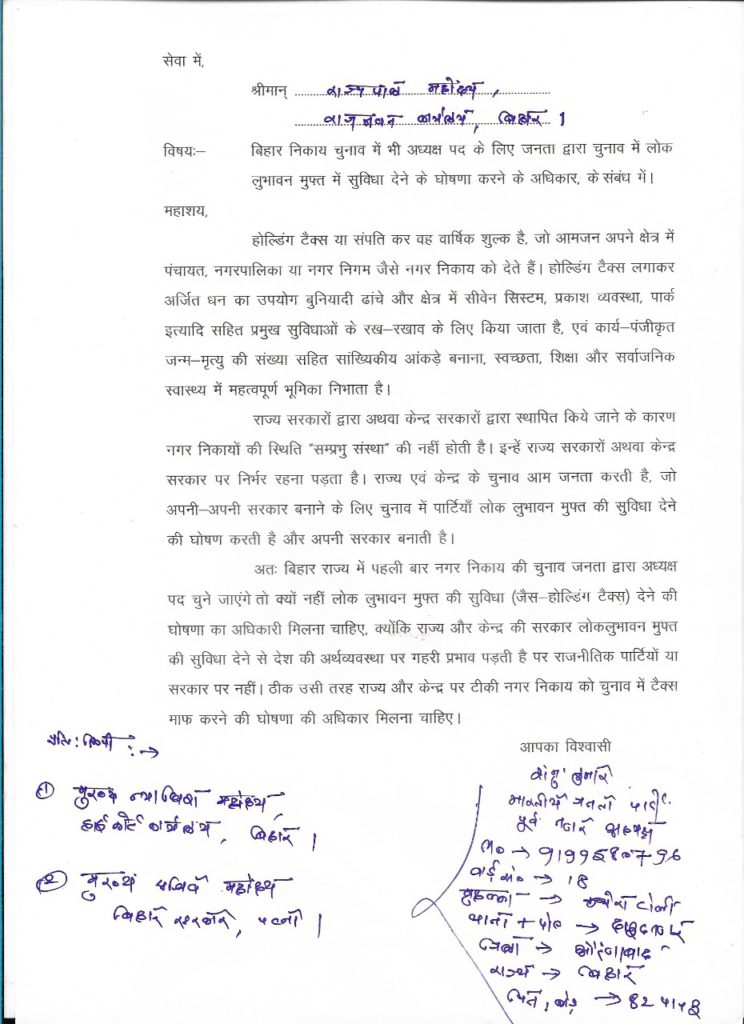 सेवा में,
श्रीमान् राज्यपाल महोदय,
राजभवन कार्यालय, बिहार।
विषयः– बिहार निकाय चुनाव में भी अध्यक्ष पद के लिए जनता द्वारा चुनाव में लोक
लुभावन मुफ्त में सुविधा देने के घोषणा करने के अधिकार, के संबंध में।
महाशय,
होल्डिंग टैक्स या संपति कर वह वार्षिक शुल्क है, जो आमजन अपने क्षेत्र में
पंचायत, नगरपालिका या नगर निगम जैसे नगर निकाय को देते हैं। होल्डिंग टैक्स लगाकर
अर्जित धन का उपयोग बुनियादी ढांचे और क्षेत्र में सीवेन सिस्टम, प्रकाश व्यवस्था, पार्क
इत्यादि सहित प्रमुख सुविधाओं के रख–रखाव के लिए किया जाता है, एवं कार्य–पंजीकृत
जन्म–मृत्यु की संख्या सहित सांख्यिकीय आंकड़े बनाना, स्वच्छता, शिक्षा और सर्वाजनिक
स्वास्थ्य में महत्वपूर्ण भूमिका निभाता है।
राज्य सरकारों द्वारा अथवा केन्द्र सरकारों द्वारा स्थापित किये जाने के कारण
नगर निकायों की स्थिति "सम्प्रभु संस्था" की नहीं होती है। इन्हें राज्य सरकारों अथवा केन्द्र
सरकार पर निर्भर रहना पड़ता है। राज्य एवं केन्द्र के चुनाव आम जनता करती है, जो
अपनी–अपनी सरकार बनाने के लिए चुनाव में पार्टियाँ लोक लुभावन मुफ्त की सुविधा देने
की घोषण करती है और अपनी सरकार बनाती है।
अतः बिहार राज्य में पहली बार नगर निकाय की चुनाव जनता द्वारा अध्यक्ष
पद चुने जाएंगे तो क्यों नहीं लोक लुभावन मुफ्त की सुविधा (जैस–होल्डिंग टैक्स) देने की
घोषणा का अधिकारी मिलना चाहिए, क्योंकि राज्य और केन्द्र की सरकार लोकलुभावन मुफ्त
की सुविधा देने से देश की अर्थव्यवस्था पर गहरी प्रभाव पड़ती है पर राजनीतिक पार्टियों या
सरकार पर नहीं। ठीक उसी तरह राज्य और केन्द्र पर टीकी नगर निकाय को चुनाव में टैक्स
माफ करने की घोषणा की अधिकार मिलना चाहिए।
आपका विश्वासी
कुमार
भारतीय जनता पार्टी
पूर्व नगर अध्यक्ष
मो० → 9199580796
वार्ड नं० → 18
मुहल्ला → टोली
थाना + पो० → दाउदनगर
जिला → औरंगाबाद
राज्य → बिहार
पिन कोड → 824143
प्रति:लिपी :→
① मुख्य न्यायधिश महोदय,
हाईकोर्ट कार्यालय, बिहार।
② मुख्य सचिव महोदय
बिहार सरकार, पटना।